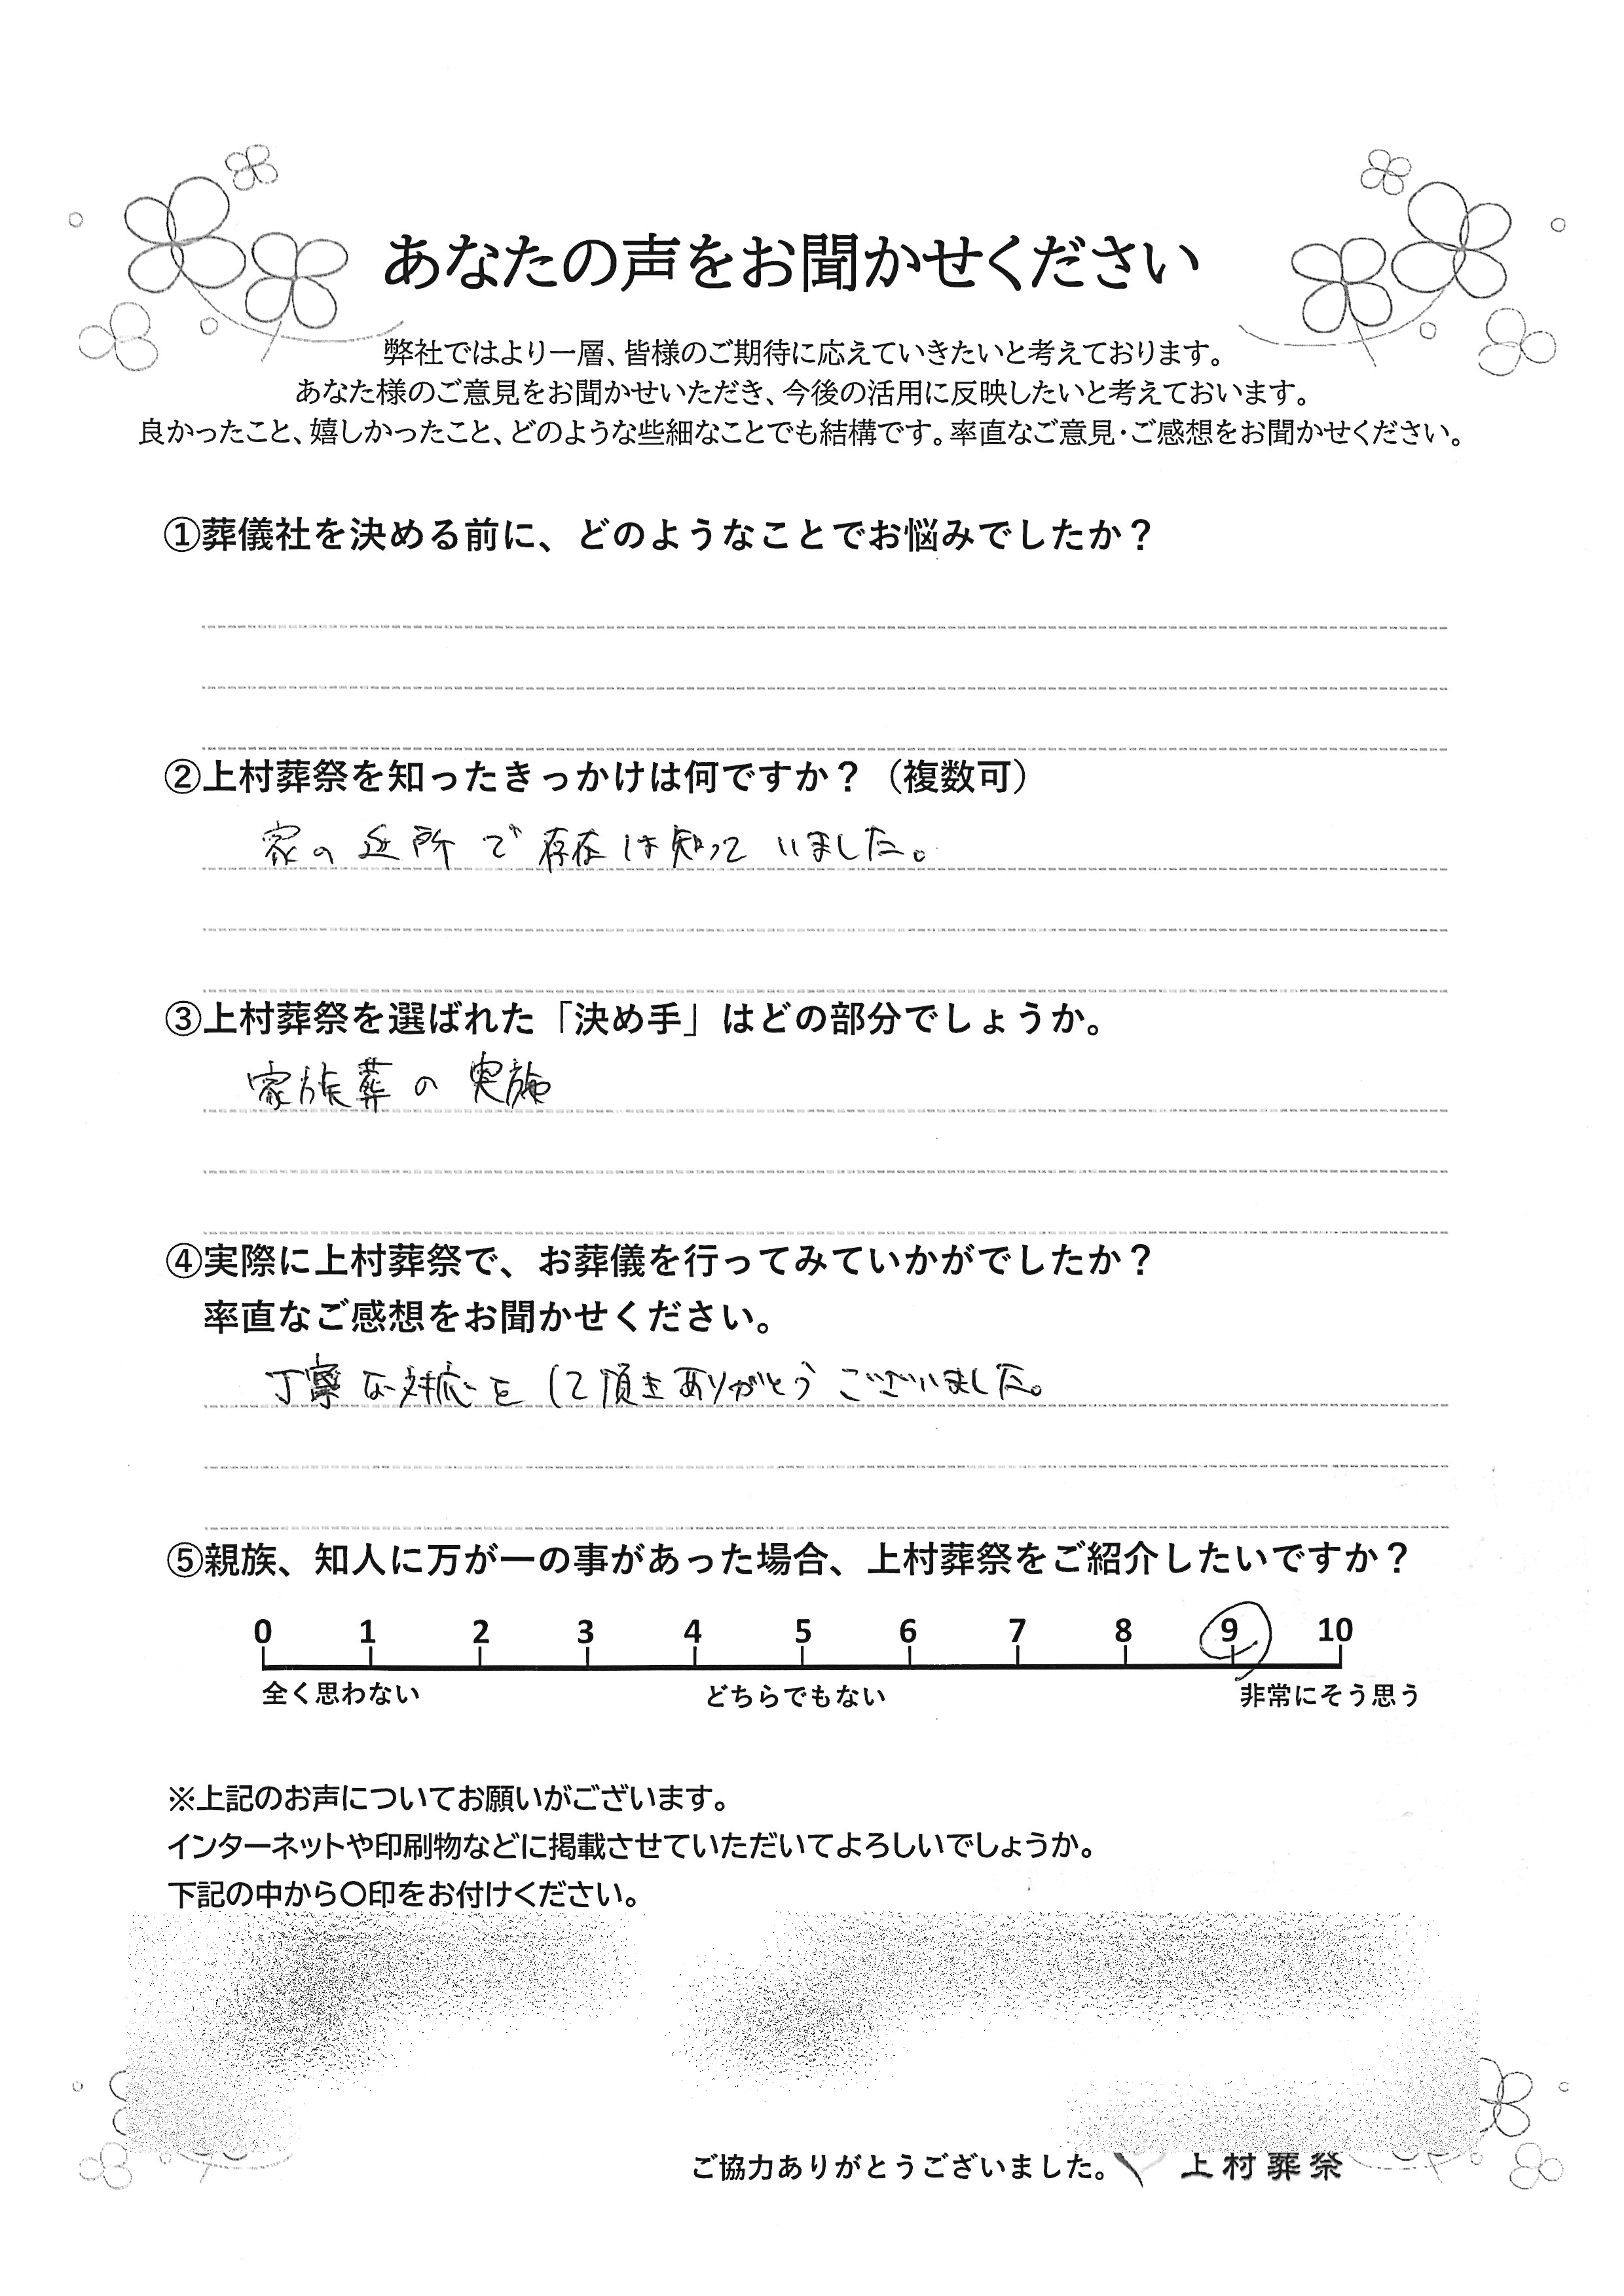 あなたの声をお聞かせください
弊社ではより一層、皆様のご期待に応えていきたいと考えております。
あなた様のご意見をお聞かせいただき、今後の活用に反映したいと考えておいます。
良かったこと、嬉しかったこと、どのような些細なことでも結構です。率直なご意見・ご感想をお聞かせください。
①葬儀社を決める前に、どのようなことでお悩みでしたか？
②上村葬祭を知ったきっかけは何ですか？（複数可）
家の近所で存在は知っていました。
③上村葬祭を選ばれた「決め手」はどの部分でしょうか。
家族葬の実施
④実際に上村葬祭で、お葬儀を行ってみていかがでしたか？
率直なご感想をお聞かせください。
丁寧な対応をして頂きありがとうございました。
⑤親族、知人に万が一の事があった場合、上村葬祭をご紹介したいですか？
0 1 2 3 4 5 6 7 8 9 10
全く思わない どちらでもない 非常にそう思う
※上記のお声についてお願いがございます。
インターネットや印刷物などに掲載させていただいてよろしいでしょうか。
下記の中から〇印をお付けください。
ご協力ありがとうございました。 上村葬祭